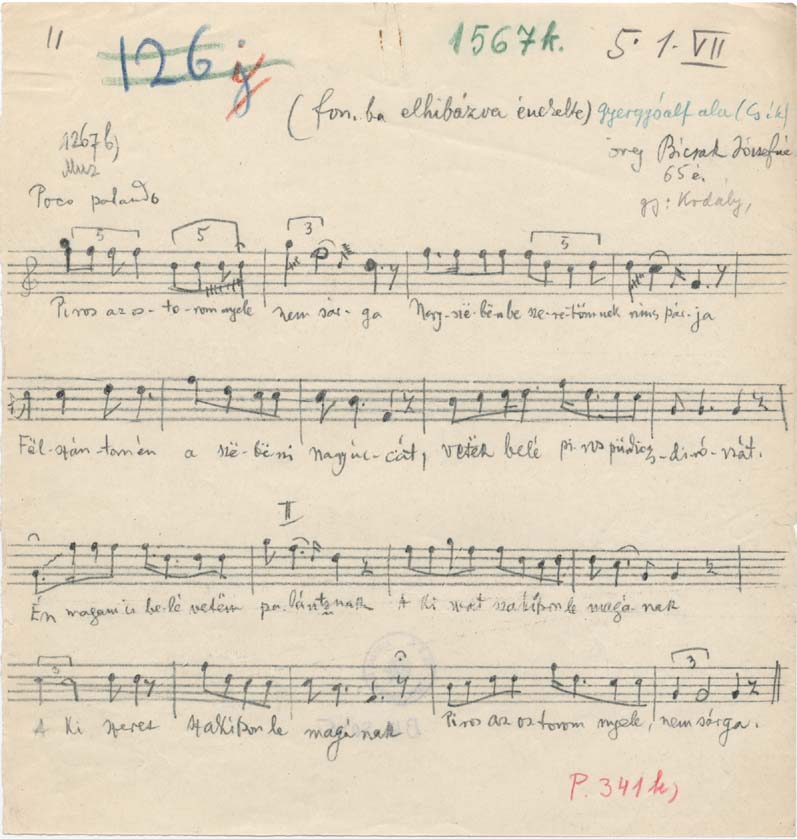 11 126 j 1567k. 5. 1. VII
(fon. ba elhibázva énekelte) gyergyóalfalu (Csík)
1267b) öreg Bicsak Józsefné
65 é.
Poco parlando gy: Kodály,
5 5 3 5
Piros az os-to-rom nyele nem sár-ga Nagy-szë-bënbe sze-re-tömnek nincs pár-ja
Fël-szán-tanám a szë-bë-ni nagyuc-cát, vetëk belé piros
II
Én magam is be-lé vetëm pa-lántznak A ki mát szakíson le magá-nak
3 3
A ki szeret szakíson le magának Piros az ostorom nyele, nem sárga.
P. 341k)